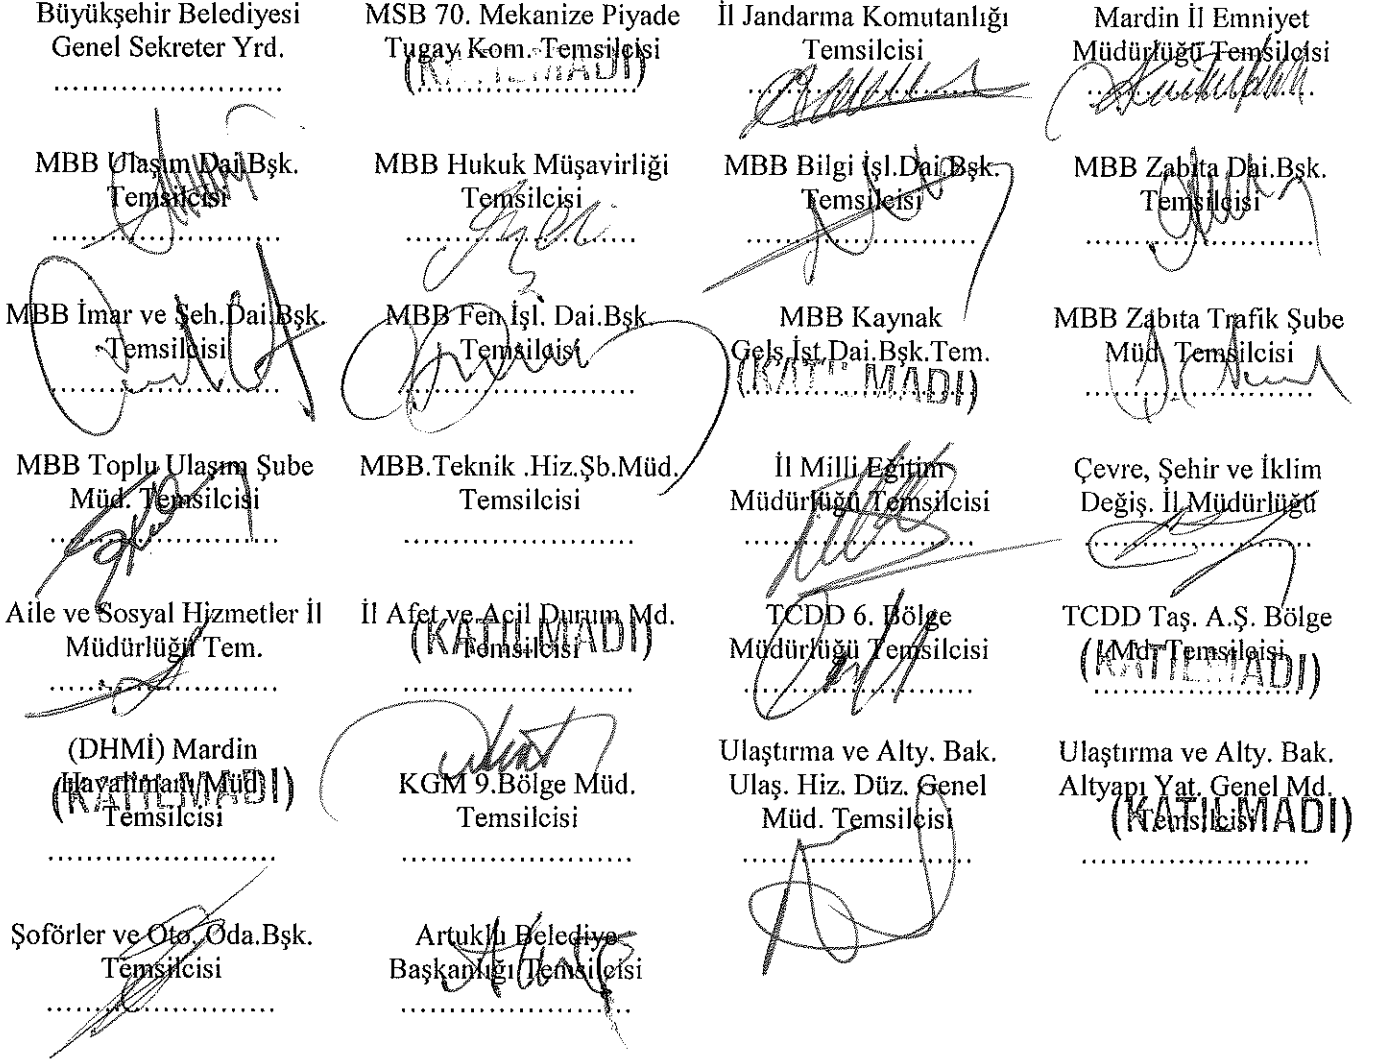 Büyükşehir Belediyesi
Genel Sekreter Yrd.
MSB 70. Mekanize Piyade
Tugay Kom. Temsilcisi
(KATILMADI)
İl Jandarma Komutanlığı
Temsilcisi
Mardin İl Emniyet
Müdürlüğü Temsilcisi
MBB Ulaşım Dai.Bşk.
Temsilcisi
MBB Hukuk Müşavirliği
Temsilcisi
MBB Bilgi İşl.Dai.Bşk.
Temsilcisi
MBB Zabıta Dai.Bşk.
Temsilcisi
MBB İmar ve Şeh.Dai.Bşk.
Temsilcisi
MBB Fen İşl. Dai.Bşk.
Temsilcisi
MBB Kaynak
Gelş.İşt.Dai.Bşk.Tem.
(KATILMADI)
MBB Zabıta Trafik Şube
Müd. Temsilcisi
MBB Toplu Ulaşım Şube
Müd. Temsilcisi
MBB.Teknik .Hiz.Şb.Müd.
Temsilcisi
İl Milli Eğitim
Müdürlüğü Temsilcisi
Çevre, Şehir ve İklim
Değiş. İl Müdürlüğü
Aile ve Sosyal Hizmetler İl
Müdürlüğü Tem.
İl Afet ve Acil Durum Md.
Temsilcisi
(KATILMADI)
TCDD 6. Bölge
Müdürlüğü Temsilcisi
TCDD Taş. A.Ş. Bölge
Md. Temsilcisi
(KATILMADI)
(DHMİ) Mardin
Havalimanı Müd.
Temsilcisi
(KATILMADI)
KGM 9.Bölge Müd.
Temsilcisi
Ulaştırma ve Alty. Bak.
Ulaş. Hiz. Düz. Genel
Müd. Temsilcisi
Ulaştırma ve Alty. Bak.
Altyapı Yat. Genel Md.
Temsilcisi
(KATILMADI)
Şoförler ve Oto. Oda.Bşk.
Temsilcisi
Artuklu Belediye
Başkanlığı Temsilcisi